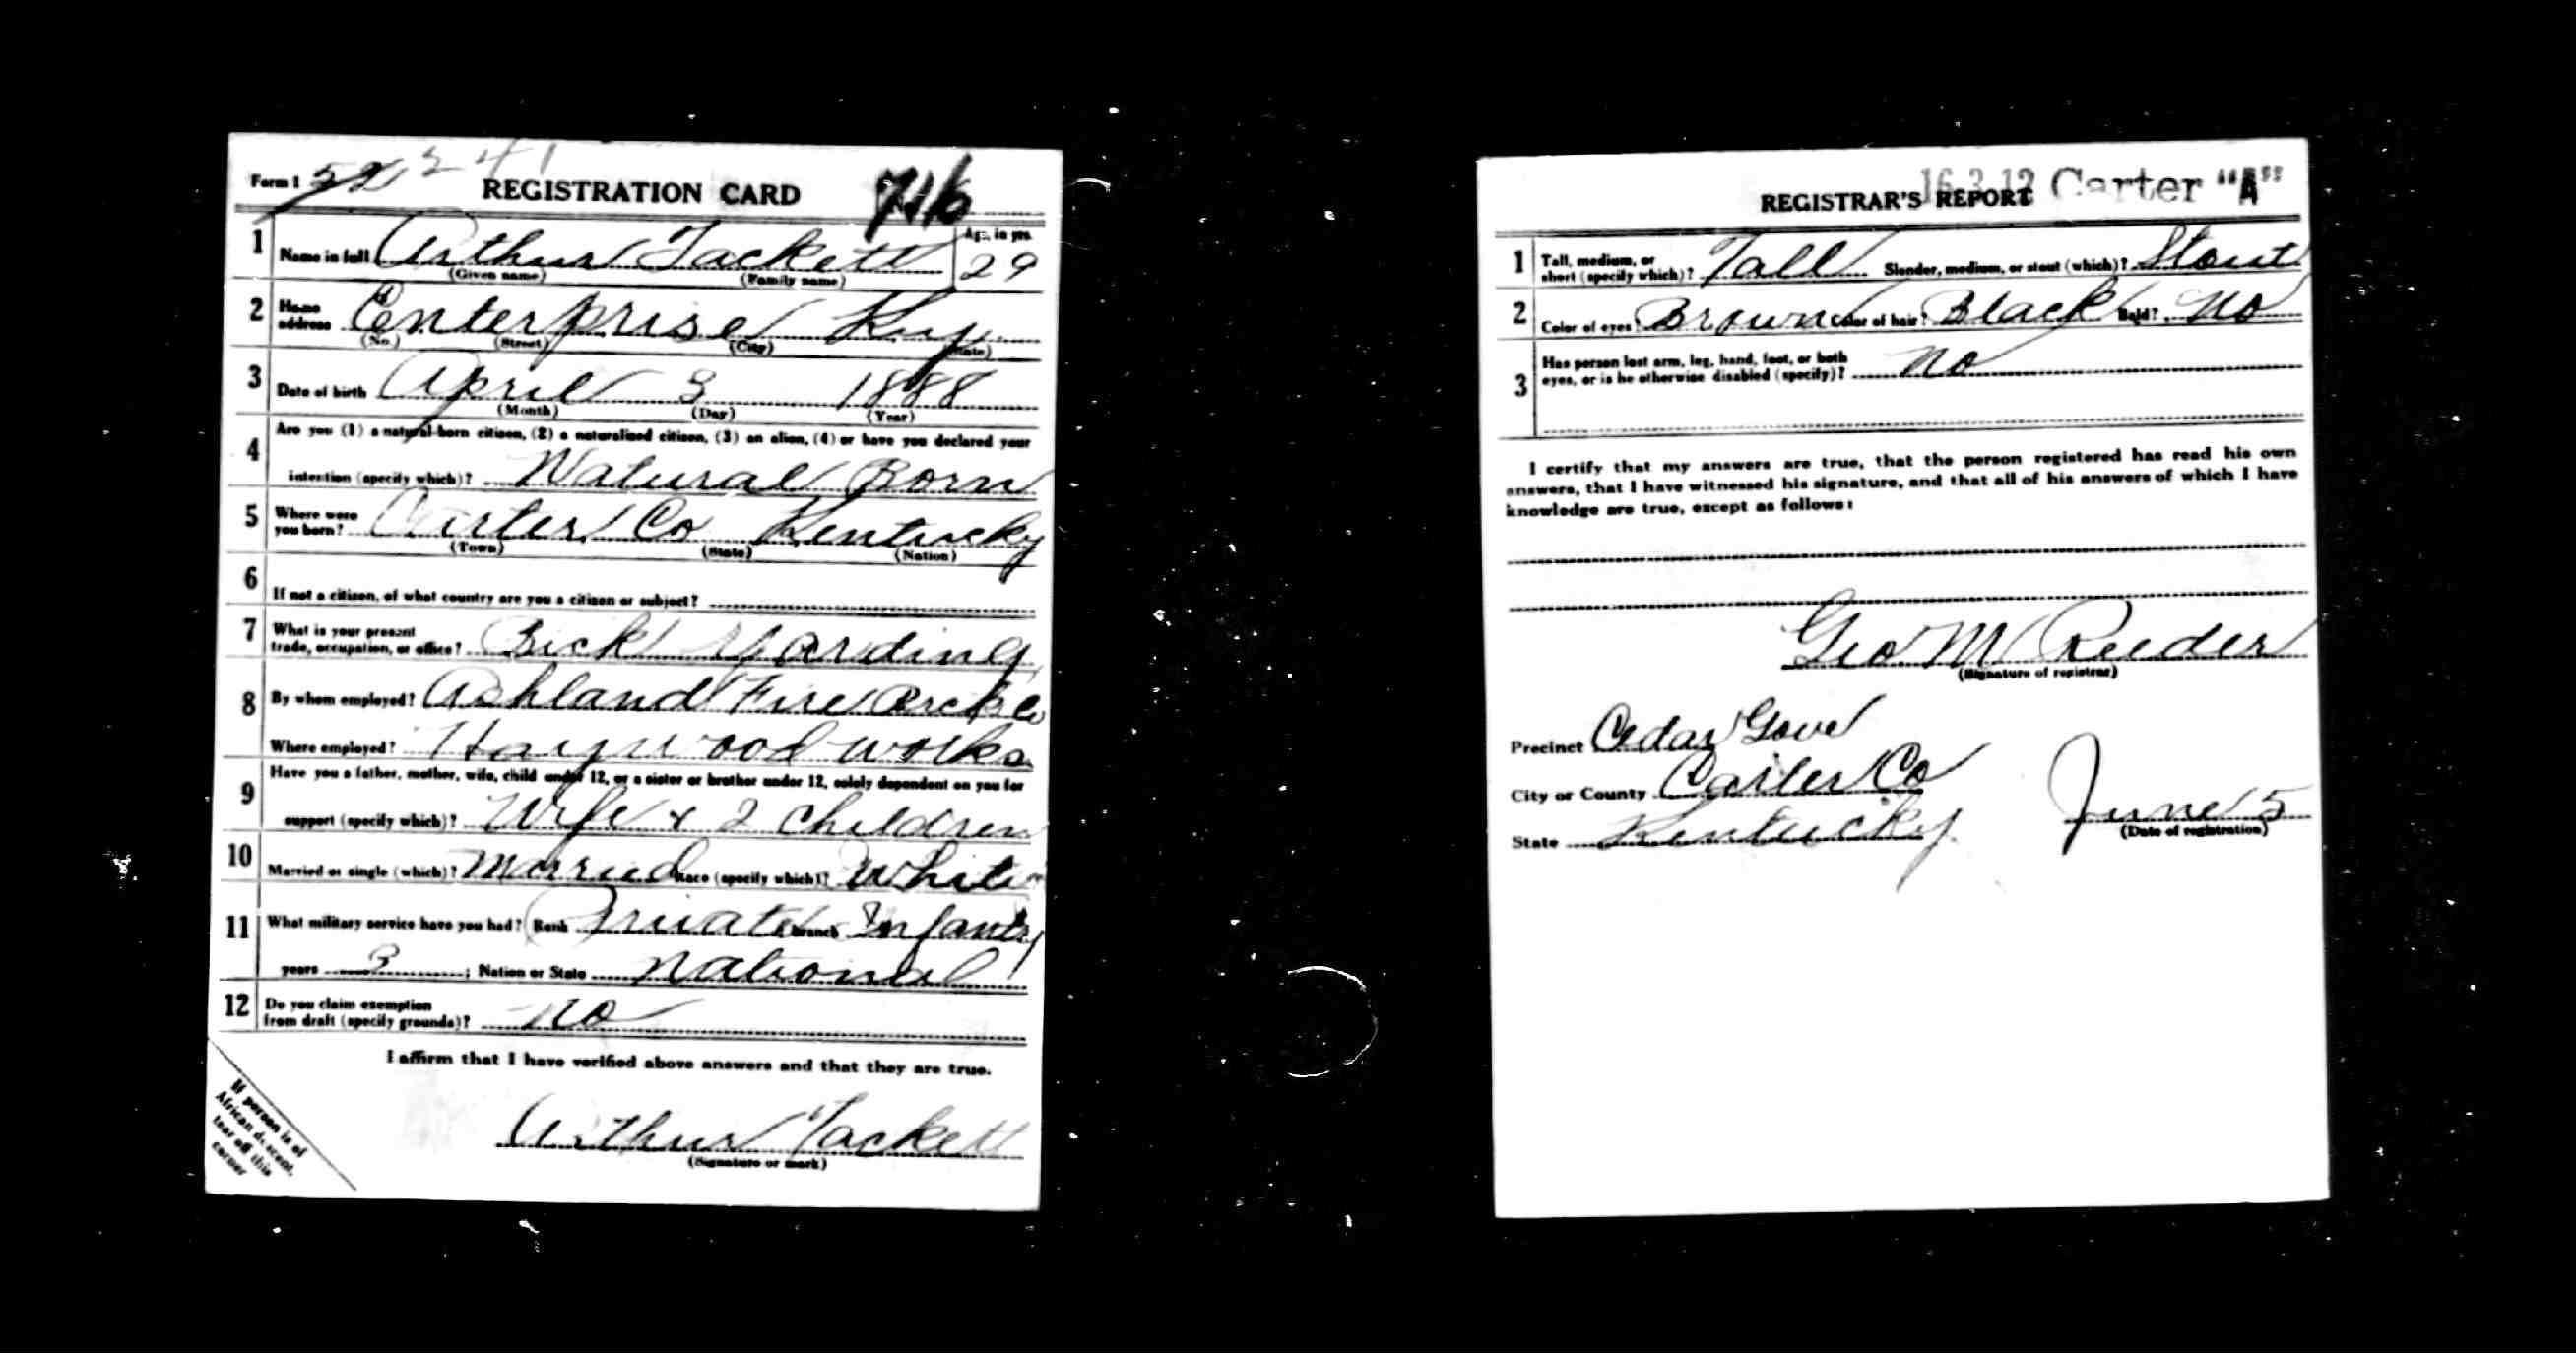 Form 1 522 341 REGISTRATION CARD 716
1 Name in full Arthur Tackett Age, in yrs. 29
(Given name) (Family name)
2 Home address Enterprise Ky.
(No.) (Street) (City) (State)
3 Date of birth April 3 1888
(Month) (Day) (Year)
4 Are you (1) a natural-born citizen, (2) a naturalized citizen, (3) an alien, (4) or have you declared your
intention (specify which)? Natural Born
5 Where were you born? Carter Co Kentucky
(Town) (State) (Nation)
6 If not a citizen, of what country are you a citizen or subject?
7 What is your present trade, occupation, or office? Bick Yarding
8 By whom employed? Ashland Fire Brck Co
Where employed? Haywood works
9 Have you a father, mother, wife, child under 12, or a sister or brother under 12, solely dependent on you for
support (specify which)? Wife & 2 Children
10 Married or single (which)? Married Race (specify which)? White
11 What military service have you had? Rank Private branch Infantry
years 3 ; Nation or State National
12 Do you claim exemption from draft (specify grounds)? no
I affirm that I have verified above answers and that they are true.
Arthur Tackett
(Signature or mark)
If person is of
African descent,
tear off this
corner
16-3-12 Carter "A"
REGISTRAR'S REPORT
1 Tall, medium, or short (specify which)? Tall Slender, medium, or stout (which)? Stout
2 Color of eyes? Brown Color of hair? Black Bald? No
3 Has person lost arm, leg, hand, foot, or both
eyes, or is he otherwise disabled (specify)? no
I certify that my answers are true, that the person registered has read his own
answers, that I have witnessed his signature, and that all of his answers of which I have
knowledge are true, except as follows:
Geo M Reeder
(Signature of registrar)
Precinct Cedar Gove
City or County Carter Co
State Kentucky June 5
(Date of registration)